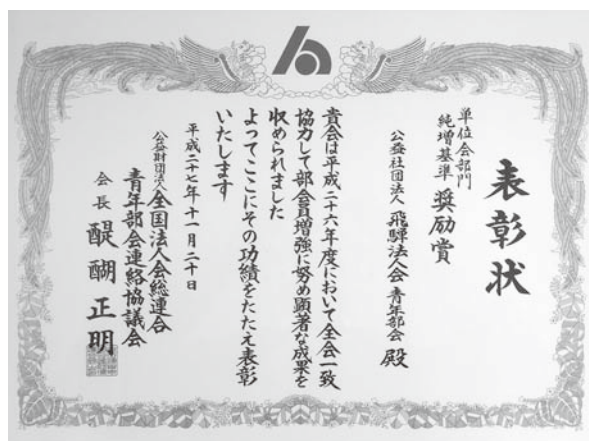 表彰状
単位会部門
純増基準 奨励賞
公益社団法人 飛騨法人会 青年部会 殿
貴会は平成二十六年度において全会一致
協力して部会員増強に努め顕著な成果を
収められました
よってここにその功績をたたえ表彰
いたします
平成二十七年十一月二十日
公益財団法人 全国法人会総連合
青年部会連絡協議会
会長 醍醐正明